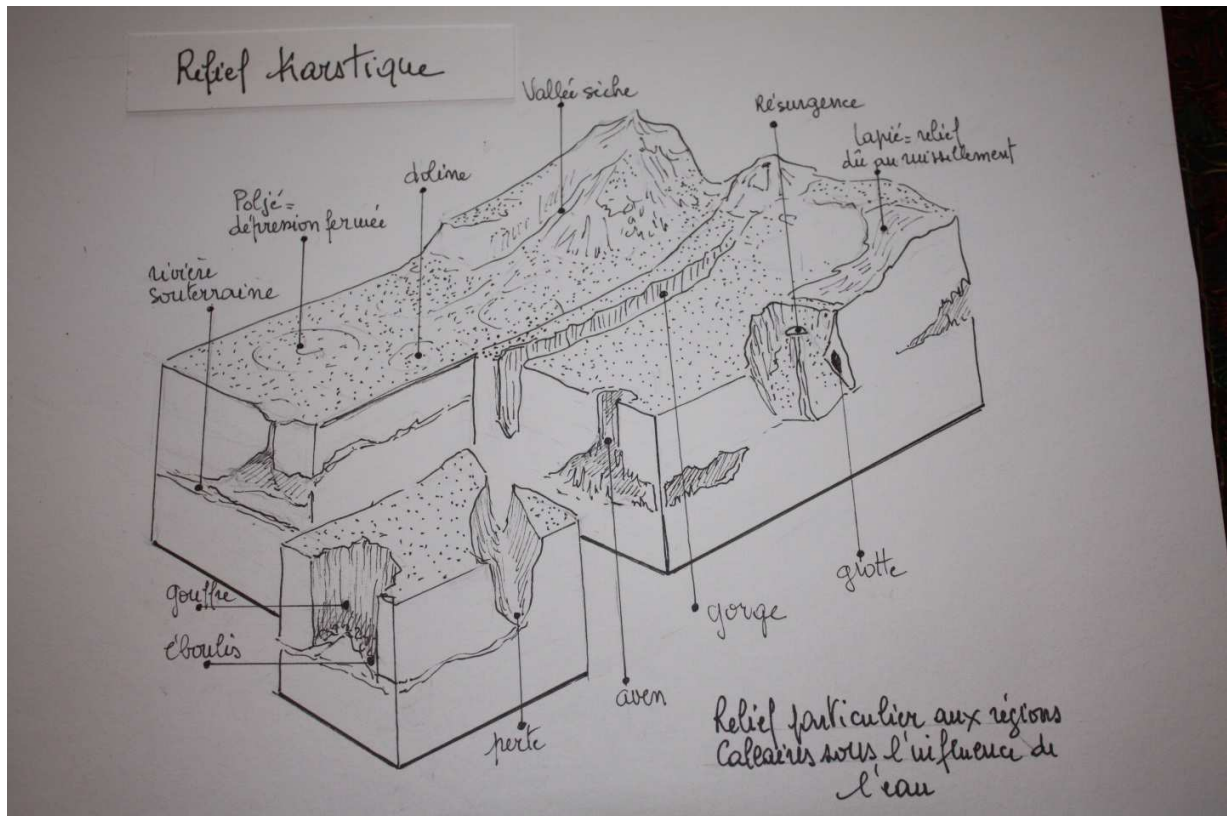 Relief karstique
Vallée sèche
Résurgence
Lapié = relief
dû au ruissellement
doline
Poljé =
dépression fermée
rivière
souterraine
gouffre
éboulis
perte
aven
gorge
grotte
Relief particulier aux régions
Calcaires sous l'influence de
l'eau